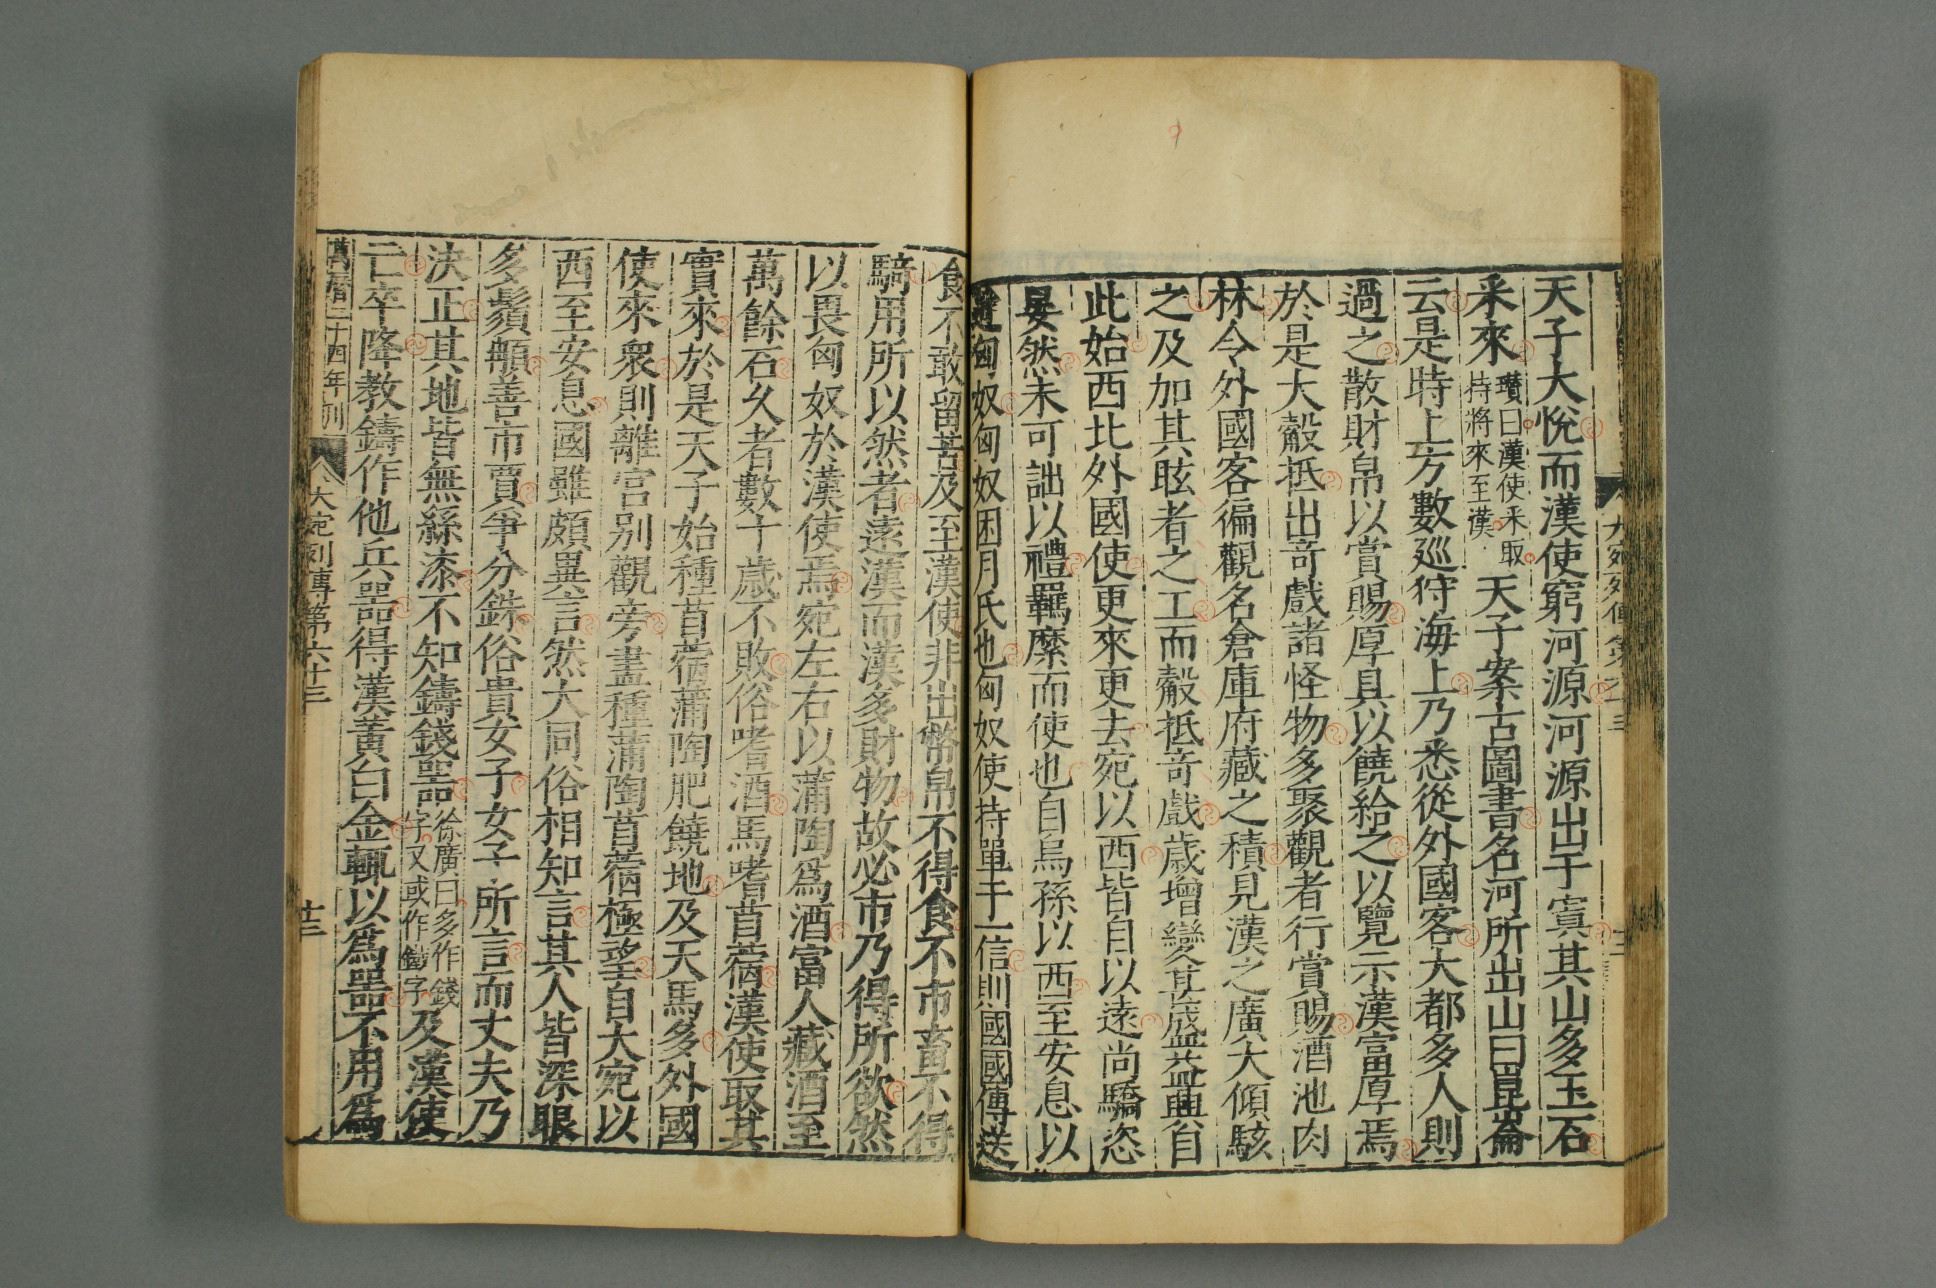 天子大悅而漢使窮河源河源出于窴其山多玉石
采來瓚曰漢使采取持將來至漢天子案古圖書名河所出山曰崑崙
云是時上方數廵狩海上乃悉從外國客大都多人則
過之散財帛以賞賜厚具以饒給之以覽示漢富厚焉
於是大觳抵出奇戲諸怪物多聚觀者行賞賜酒池肉
林令外國客徧觀名倉庫府藏之積見漢之廣大傾駭
之及加其眩者之工而觳抵奇戲歲增變甚盛益興自
此始西北外國使更來更去宛以西皆自以遠尚驕恣
晏然未可詘以禮羈縻而使也自烏孫以西至安息以
近匈奴匈奴困月氏也匈奴使持單于一信則國國傳送
食不敢留苦及至漢使非出幣帛不得食不市畜不得
騎用所以然者遠漢而漢多財物故必市乃得所欲然
以畏匈奴於漢使焉宛左右以蒲陶爲酒富人藏酒至
萬餘石久者數十歲不敗俗嗜酒馬嗜苜蓿漢使取其
實來於是天子始種苜蓿蒲陶肥饒地及天馬多外國
使來衆則離宮别觀旁盡種蒲陶苜蓿極望自大宛以
西至安息國雖頗異言然大同俗相知言其人皆深眼
多鬚䫇善市賈爭分銖俗貴女子女子所言而丈夫乃
決正其地皆無絲漆不知鑄錢器徐廣曰多作錢字又或作鐵字及漢使
亡卒降教鑄作他兵器得漢黃白金輒以爲器不用爲
萬曆二十四年刊
大宛列傳第六十三
廿三